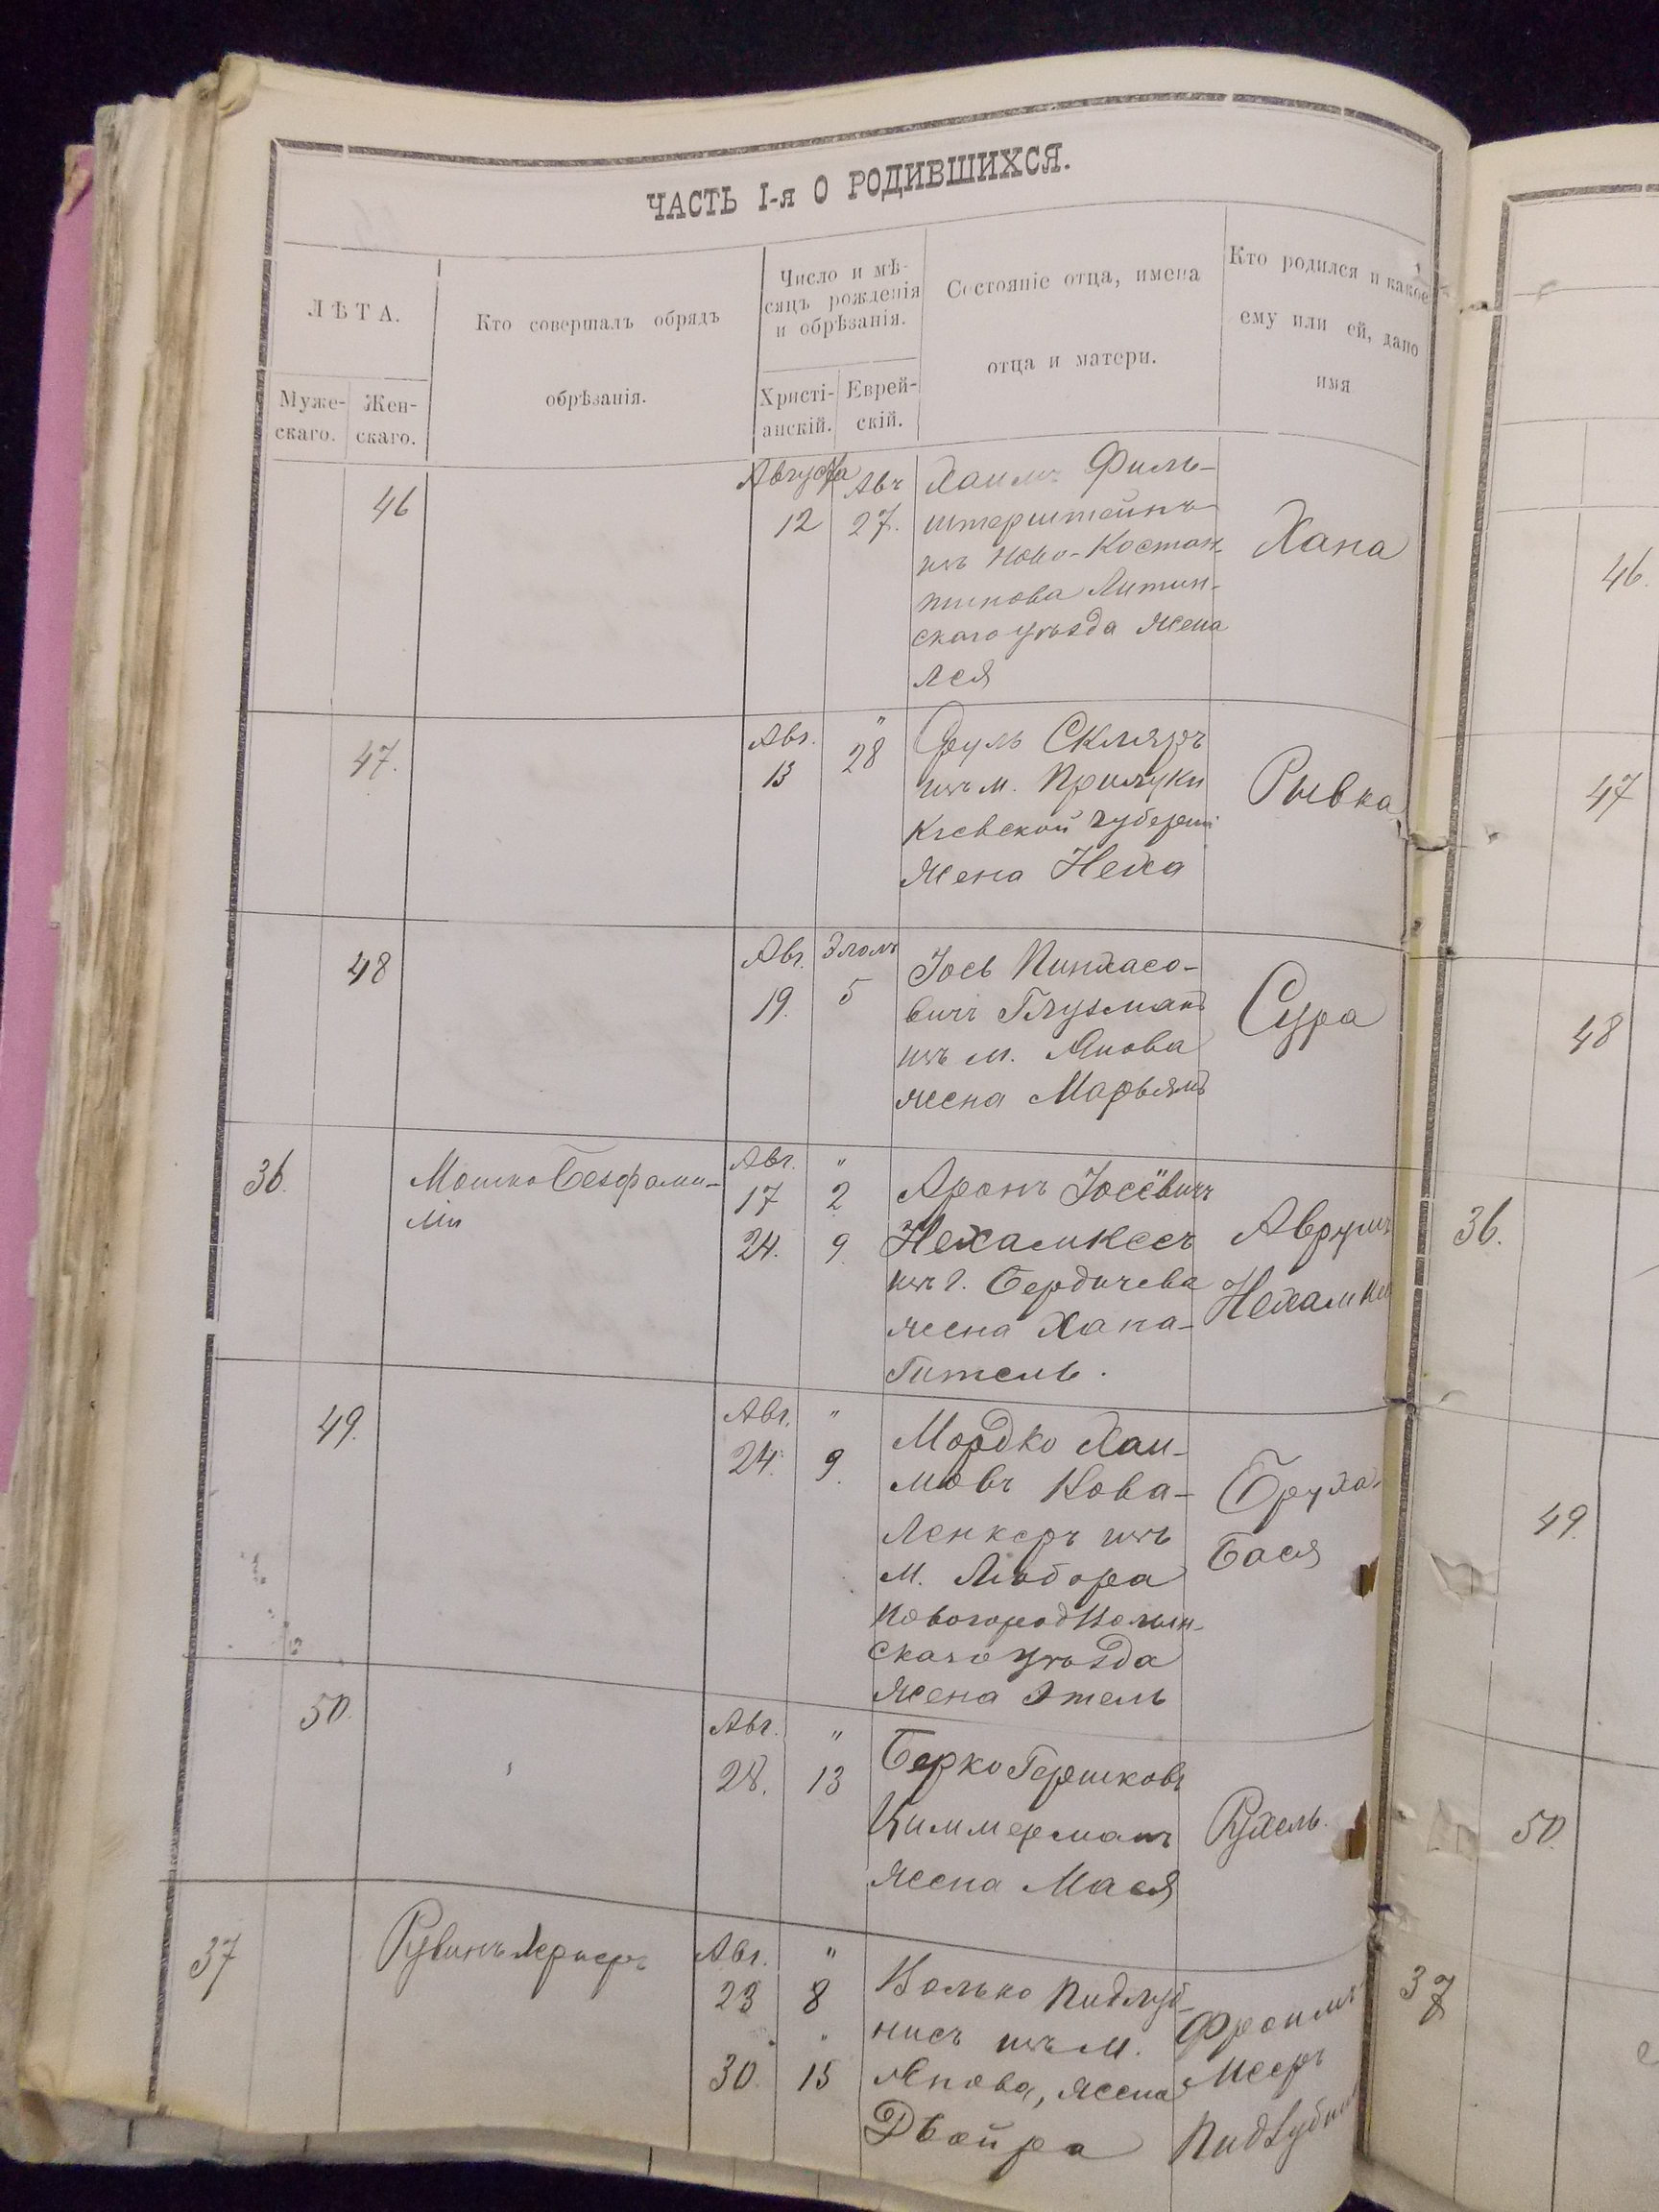 ЧАСТЬ I-я О РОДИВШИХСЯ.
ЛѢТА.
Муже-
скаго.
Жен-
скаго.
Кто совершалъ обрядъ
обрѣзанія.
Число и мѣ-
сяцъ рожденія
и обрѣзанія.
Христі-
анскій.
Еврей-
скій.
Состояніе отца, имена
отца и матери.
Кто родился и какое
ему или ей, дано
имя
46
Августа
12
Авъ
27.
Хаимъ Филь-
штерштейнъ
изъ Ново-Костан-
тинова Литин-
скаго уѣзда жена
Лея
Хана
46.
47.
Авг.
13
"
28
Сруль Скляръ
изъ м. Прилуки
Кіевской губерніи
жена Неха
Рывка
47
48
Авг.
19.
Элолъ
5
Іось Пинхасо-
вичъ Глузманъ
изъ м. Янова
жена Марьямъ
Сура
48
36.
Мошко Безфами-
ли
Авг.
17
24.
"
2
9
Аронъ Іосёвичъ
Нехамкесъ
изъ г. Бердичева
жена Хана-
Гитель.
Аврумъ
36.
49.
Авг.
24.
"
9.
Мордко Хаи-
мовъ Кова-
ленкеръ изъ
м. Любора
Новогородволын-
скаго уѣзда
жена Этель
Бруха-
Бася
49.
50.
Авг.
28.
"
13
Берко Гершковъ
Циммерманъ
жена Мася
Рухель.
50.
37
Рувинъ Лернеръ
Авг.
23
"
30.
"
8
"
15
Волько Подлуб-
нисъ изъ м.
Янова, жена
Двойра
Фроимъ
Мееръ
37